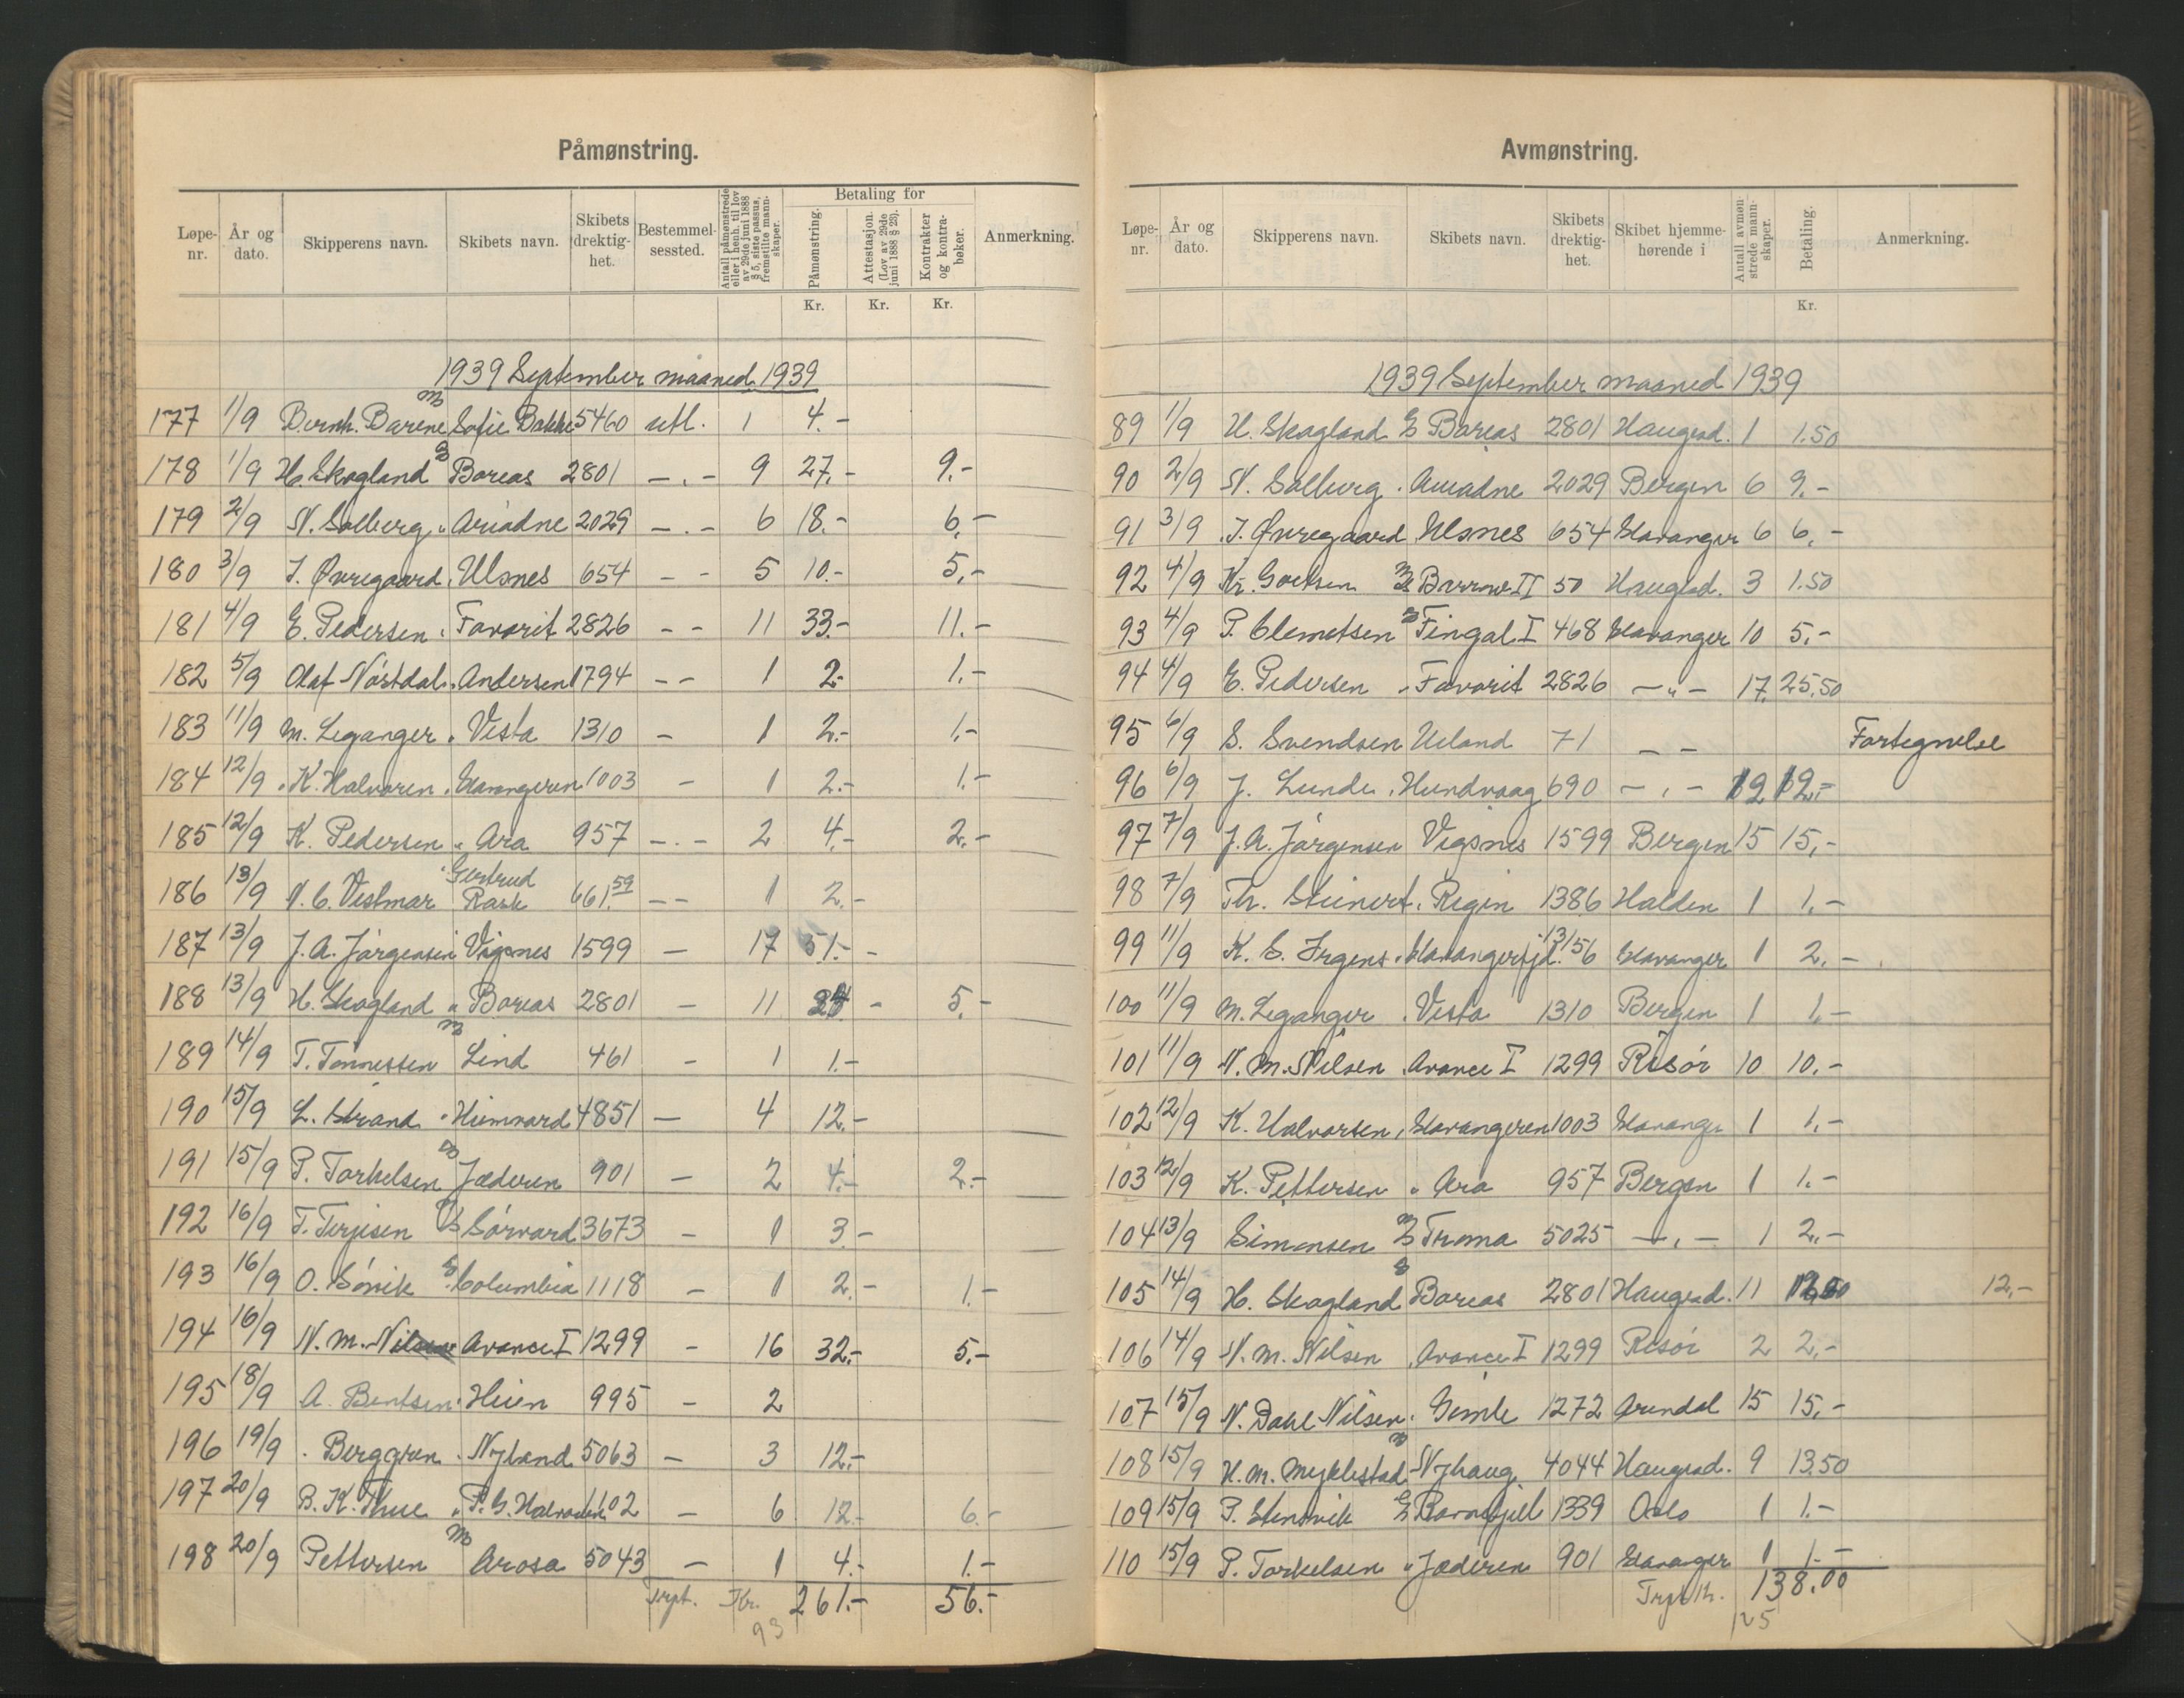 Påmønstring.
Løpe-nr. År og dato. Skipperens navn. Skibets navn. Skibets drektig-het. Bestemmel-sessted. Antall påmønstrede eller i henh. til lov av 29de juni 1888 § 5, siste passus, fremstilte mann-skaper. Betaling for Påmønstring. Attestasjon. (Lov av 29de juni 1888 § 23). Kontrakter og kontra-bøker. Anmerkning.
Kr. Kr. Kr.
1939 September maaned 1939
177 1/9 Bernh. Barene M Sofie Bakke 5460 utl. 1 4.-
178 1/9 H. Skogland S Boreas 2801 -.- 9 27.- 9.-
179 2/9 N. Solberg " Ariadne 2029 -.- 6 18.- 6.-
180 3/9 J. Øvregaard. Ulsnes 654 - - 5 10.- 5.-
181 4/9 E. Pedersen . Favorit 2826 - - 11 33.- 11.-
182 5/9 Olaf Nøstdal . Andersen 1794 - - 1 2.- 1.-
183 11/9 M. Leganger . Vesta 1310 - 1 2.- 1.-
184 12/9 K. Halvorsen . Stavangeren 1003 - 1 2.- 1.-
185 12/9 K. Pedersen " Ara 957 -.- 2 4.- 2.-
186 13/9 N. C. Vestmar " Gertrud Rask 661.59 - - 1 2.-
187 13/9 J. A. Jørgensen Vigsnes 1599 - 17 51.- -
188 13/9 H. Skogland " Boreas 2801 - 11 - 5.-
189 14/9 T. Tønnessen M Lind 461 - 1 1.-
190 15/9 L. Strand " Heimvard 4851 - 4 12.-
191 15/9 P. Torkelsen S Jæderen 901 - 2 4.- 2.-
192 16/9 T. Terjesen Sørvard 3673 - 1 3.-
193 16/9 O. Sønik S Columbia 1118 - 1 2.- 1.-
194 16/9 N. M. Nilsen Avance I 1299 - 16 32.- 5.-
195 18/9 A. Bentsen . Heien 995 - 2
196 19/9 . Berggren . Nyland 5063 - 3 12.-
197 20/9 B. K. Thue " P. G. Halvorsen 1102 - 6 12.- 6.-
198 20/9 Pettersen M Arosa 5043 - 1 4.- 1.-
Trpt. Kr. 261.- 56.-
93
Avmønstring.
Løpe-nr. År og dato. Skipperens navn. Skibets navn. Skibets drektig-het. Skibet hjemme-hørende i Antall avmøn-strede mann-skaper. Betaling. Anmerkning.
Kr.
1939 September maaned 1939
89 1/9 H. Skogland S Boreas 2801 Haugesd. 1 1.50
90 2/9 N. Solberg . Ariadne 2029 Bergen 6 9.-
91 3/9 J. Øvregaard Ulsnes 654 Stavanger 6 6.-
92 4/9 Kr. Goetsen Barrow II 50 Haugesd. 3 1.50
93 4/9 P. Clemetsen S Fingal I 468 Stavanger 10 5.-
94 4/9 E. Pedersen " Favorit 2826 -"- 17 25.50
95 6/9 S. Svendsen Ueland 71 - - Fortegnelse
96 6/9 J. Lunde . Hundvaag 690 -.- 12 12.-
97 7/9 J. A. Jørgensen Vigsnes 1599 Bergen 15 15.-
98 7/9 Th. Steinert . Regin 1386 Halden 1 1.-
99 11/9 K. S. Irgens . Stavangerfjd. 13156 Stavanger 1 2.-
100 11/9 M. Leganger . Vesta 1310 Bergen 1 1.-
101 11/9 N. M. Nilsen . Avance I 1299 Risør 10 10.-
102 12/9 K. Halvorsen . Stavangeren 1003 Stavanger 1 1.-
103 12/9 K. Pettersen " Ara 957 Bergen 1 1.-
104 13/9 Simonsen Troma 5025 -.- 1 2.-
105 14/9 H. Skogland S Boreas 2801 Haugesd. 11 12.-
106 14/9 N. M. Nilsen . Avance I 1299 Risør 2 2.-
107 15/9 N. Dahl Nilsen . Gimle 1272 Arendal 15 15.-
108 15/9 H. M. Myklestad M Nyhaug 4044 Haugesd. 9 13.50
109 15/9 P. Stensvik S Ravnefjell 1339 Oslo 1 1.-
110 15/9 P. Torkelsen " Jæderen 901 Stavanger 1 1.-
Trpt. Kr. 138.00
125